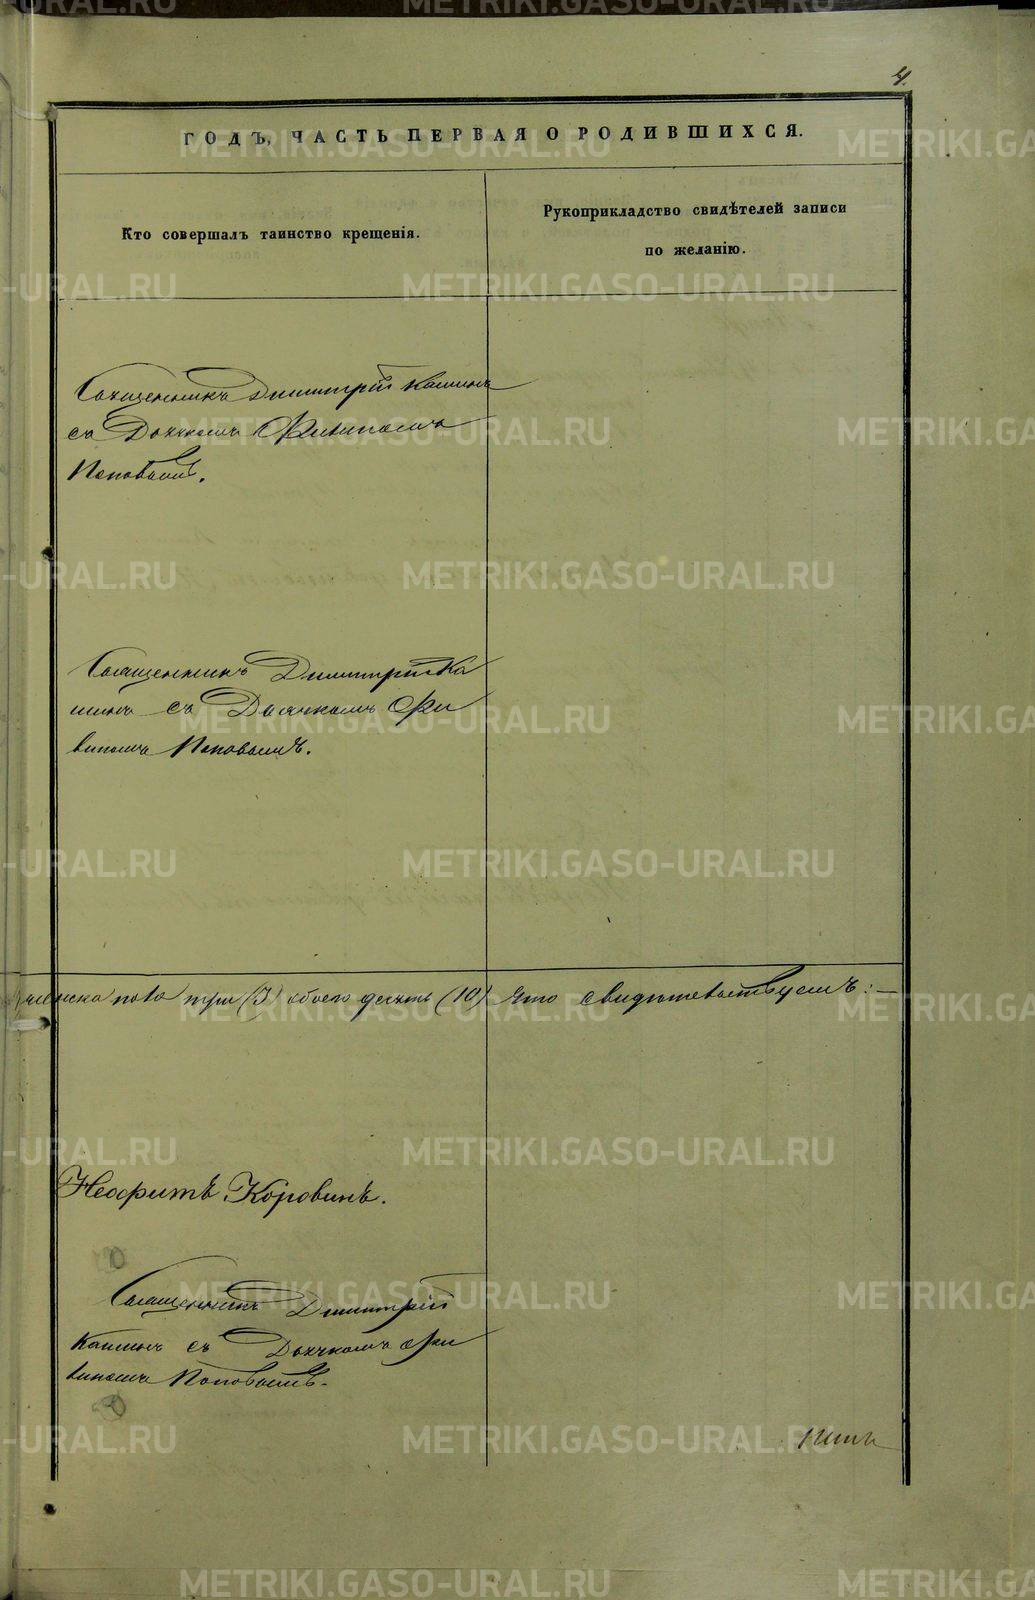 4.
ГОДЪ, ЧАСТЬ ПЕРВАЯ О РОДИВШИХСЯ.
Кто совершалъ таинство крещенія.
Рукоприкладство свидѣтелей записи
по желанію.
Священникъ Димитрій Кашинъ
съ Дьячкомъ Филипомъ
Поповымъ.
Священникъ Димитрій Ка
шинъ съ Дьячкомъ Фи
липомъ Поповымъ.
женска пола три (3) обоего десять (10) Что свидѣтельствуемъ:—
Неофитъ Коровинъ.
Священникъ Димитрій
Кашинъ съ Дьячкомъ Фи
липомъ Поповымъ.
METRIKI.GASO-URAL.RU